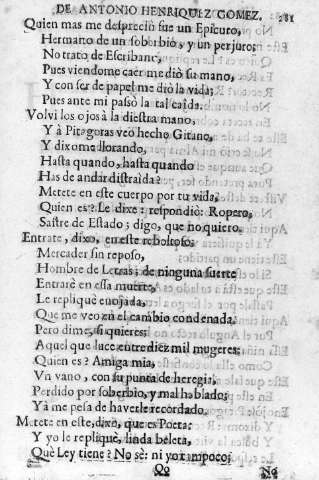 DE ANTONIO HENRIQUEZ GOMEZ. 281
Quien mas me despreciò fue un Epicuro,
Hermano de un soberbio, y un perjuro;
No trato de Escribano,
Pues viendome caer me diò su mano,
Y con ser de papel me diò la vida;
Pues ante mi pasò la tal caida.
Volvi los ojos à la diestra mano,
Y à Pitagoras veo hecho Gitano,
Y dixome llorando,
Hasta quando, hasta quando
Has de andar distraìda?
Metete en este cuerpo por tu vida,
Quien es? Le dixe: respondiò: Ropero,
Sastre de Estado; digo, que no quiero.
Entrate, dixo, en este reboltoso;
Mercader sin reposo,
Hombre de Letras; de ninguna suerte
Entrarè en essa muerte,
Le repliquè enojada,
Que me veo en el cambio condenada.
Pero dime, si quieres:
Aquel que luce entre diez mil mugeres;
Quien es? Amiga mia,
Vn vano, con su punta de heregia,
Perdido por soberbio, y mal hablado;
Yà me pesa de haverle recordado.
Metete en este, dixo, que es Poeta:
Y yo le repliquè, linda beleta,
Què Ley tiene? No sè: ni yo tampoco;
Oo No